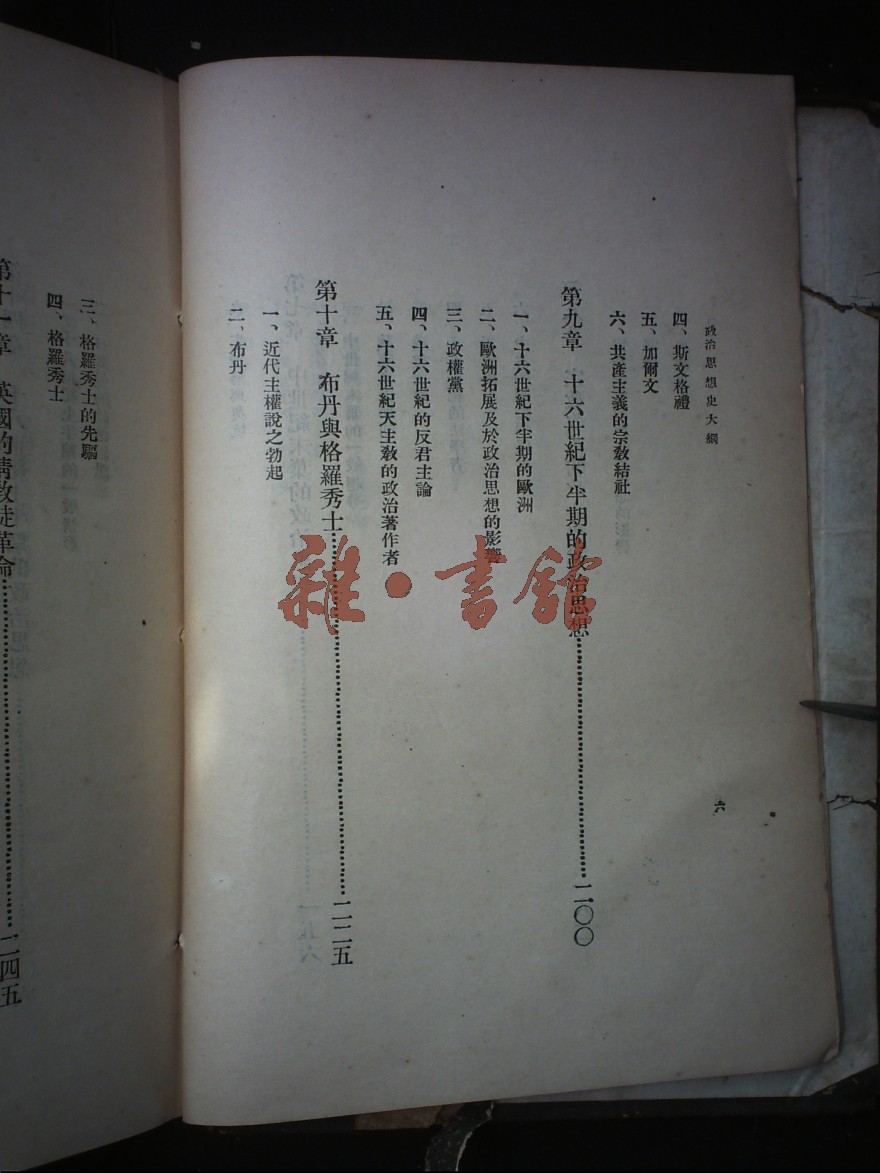 政治思想史大綱
六
四、斯文格禮
五、加爾文
六、共產主義的宗教結社
第九章 十六世紀下半期的政治思想……二〇〇
一、十六世紀下半期的歐洲
二、歐洲拓展及於政治思想的影響
三、政權黨
四、十六世紀的反君主論
五、十六世紀天主教的政治著作者
第十章 布丹與格羅秀士……二二五
一、近代主權說之勃起
二、布丹
三、格羅秀士的先驅
四、格羅秀士
第十一章 英國的清教徒革命……二四五
雜·書館